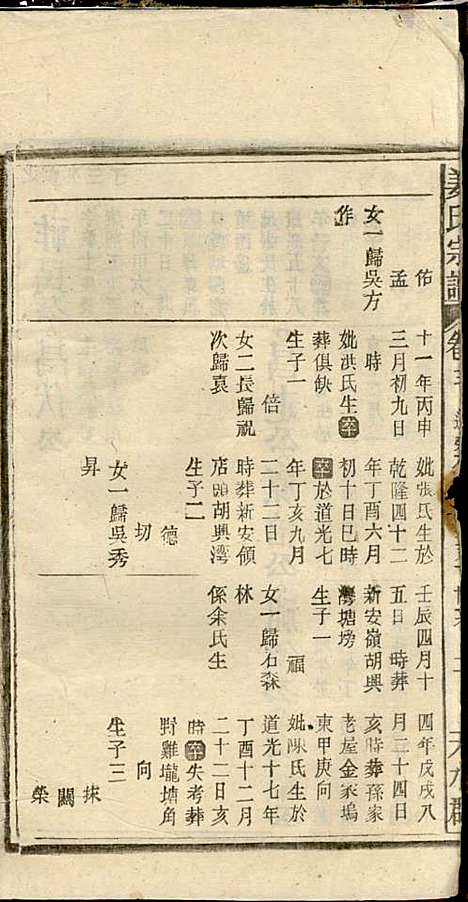 姜氏宗譜
天水郡
佑
孟
女一歸吳方
作
十一年丙申
三月初九日
時
妣洪氏生卒
葬俱缺
生子一
倍
女二長歸祝
次歸袁
妣張氏生於
乾隆四十二
年丁酉六月
初十日巳時
卒於道光七
年丁亥九月
二十二日
時葬新安領
店頭胡興灣
生子二
德
切
女一歸吳秀
昇
壬辰四月十
五日 時葬
新安嶺胡興
灣塘塝
生子一
福
女一歸石森
林
係余氏生
四年戊戌八
月二十四日
亥時葬孫家
老屋金家塢
東甲庚向
妣陳氏生於
道光十七年
丁酉十二月
二十二日亥
時卒失考葬
野雞壠角
向
生子三
採
關
榮